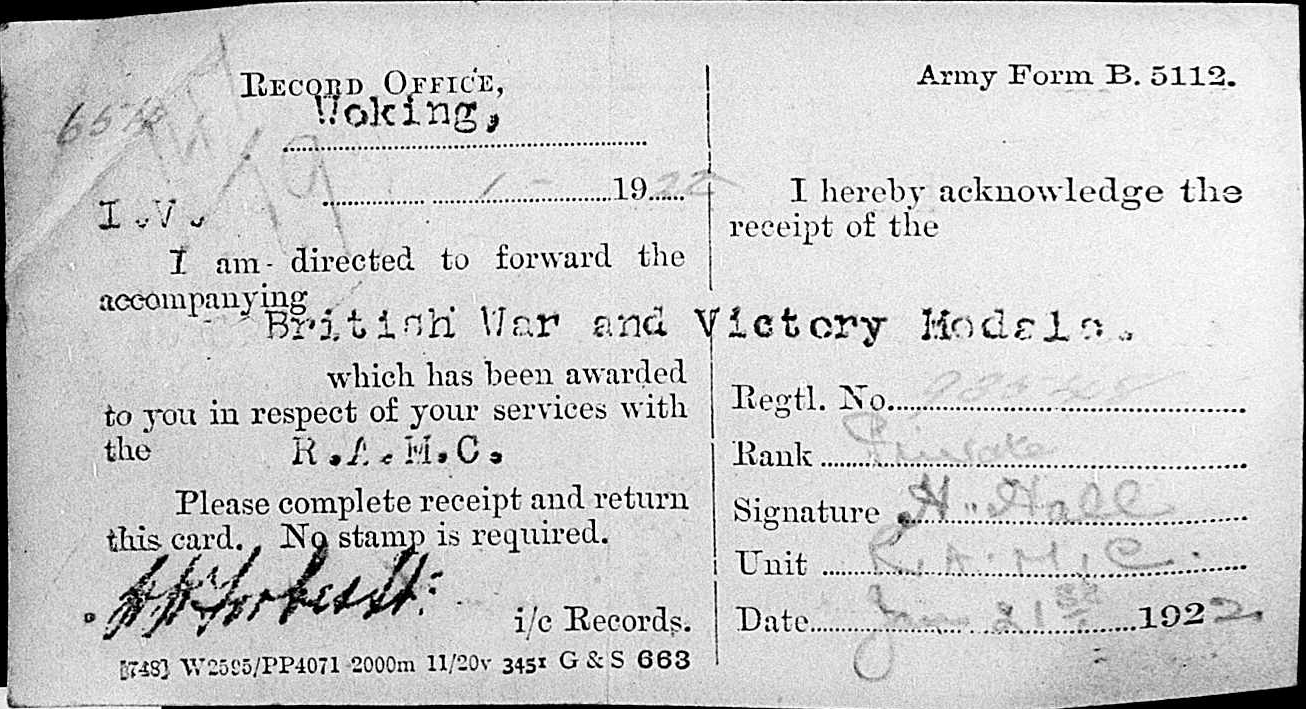 RECORD OFFICE,
Woking,
1 - 1922
I.V.
I am directed to forward the
accompanying
British War and Victory Medals.
which has been awarded
to you in respect of your services with
the R.A.M.C.
Please complete receipt and return
this card. No stamp is required.
i/c Records.
[748] W2595/PP4071 2000m 11/20v 3451 G & S 663
Army Form B. 5112.
I hereby acknowledge the
receipt of the
Regtl. No.
Rank Private
Signature H. Hall
Unit R.A.M.C.
Date Jan 21st 1922